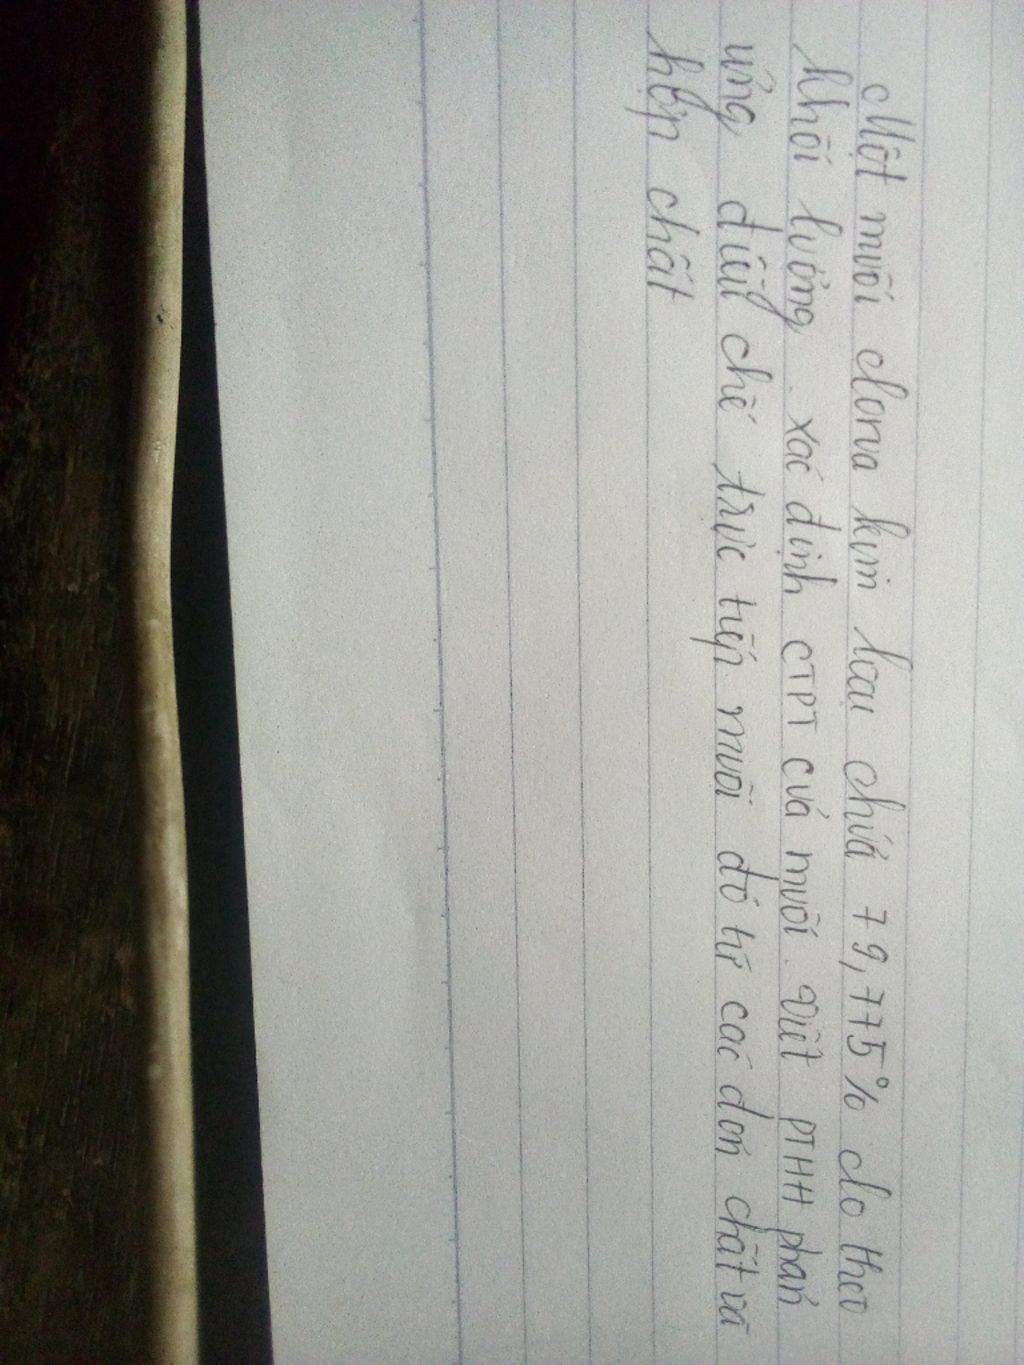 Một muối clorua kim loại chứa 79,775% clo theo
khối lượng. xác định CTPT của muối. Viết PTHH phản
ứng điều chế trực tiếp muối đó từ các đơn chất và
hợp chất